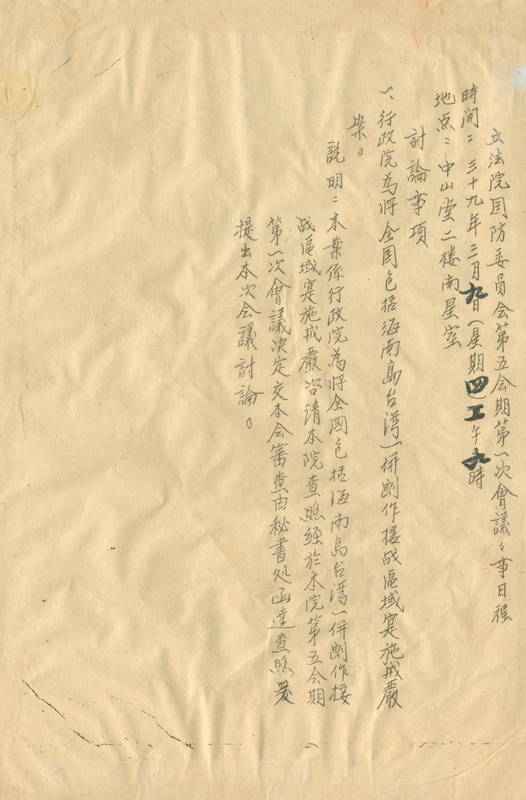 立法院国防委員会第五会期第一次會議々事日程
時间：三十九年三月九日(星期四)上午九時
地点：中山堂二楼南星室
討論事項
一、行政院為将全国包括海南島台湾一併劃作接战區域寔施戒嚴
案。
説明：本案係行政院為将全國包括海南島台湾一併劃作接
战區域寔施戒嚴咨請本院查照經於本院第五会期
第一次會議决定交本会審查由秘書処函達查照爰
提出本次会議討論。